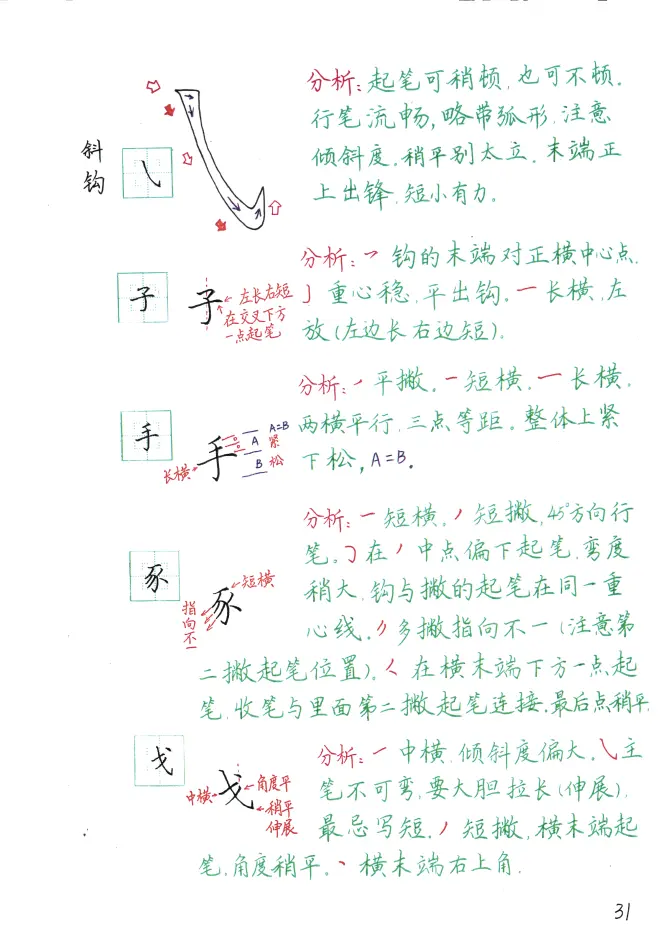 斜钩
分析：起笔可稍顿，也可不顿。
行笔流畅，略带弧形，注意
倾斜度，稍平别太立，末端正
上出锋，短小有力。
子
子
左长右短
在交叉下方
一点起笔
分析：㇇钩的末端对正横中心点，
亅重心稳，平出钩。一长横，左
放（左边长右边短）。
手
手
长横
A
B
A=B
紧
松
分析：㇒平撇，一短横，一长横，
两横平行，三点等距。整体上紧
下松，A=B。
豕
豕
短横
指向不一
分析：一短横，丿短撇，45°方向行
笔。㇁在丿中点偏下起笔，弯度
稍大，钩与撇的起笔在同一重
心线。〃多撇指向不一（注意第
二撇起笔位置）。㇛在横末端下方一点起
笔，收笔与里面第二撇起笔连接，最后点稍平。
戈
戈
中横
角度平
稍平
伸展
分析：一中横，倾斜度偏大。㇂主
笔不可弯，要大胆拉长（伸展），
最忌写短，丿短撇，横末端起
笔，角度稍平。丶横末端右上角。
31